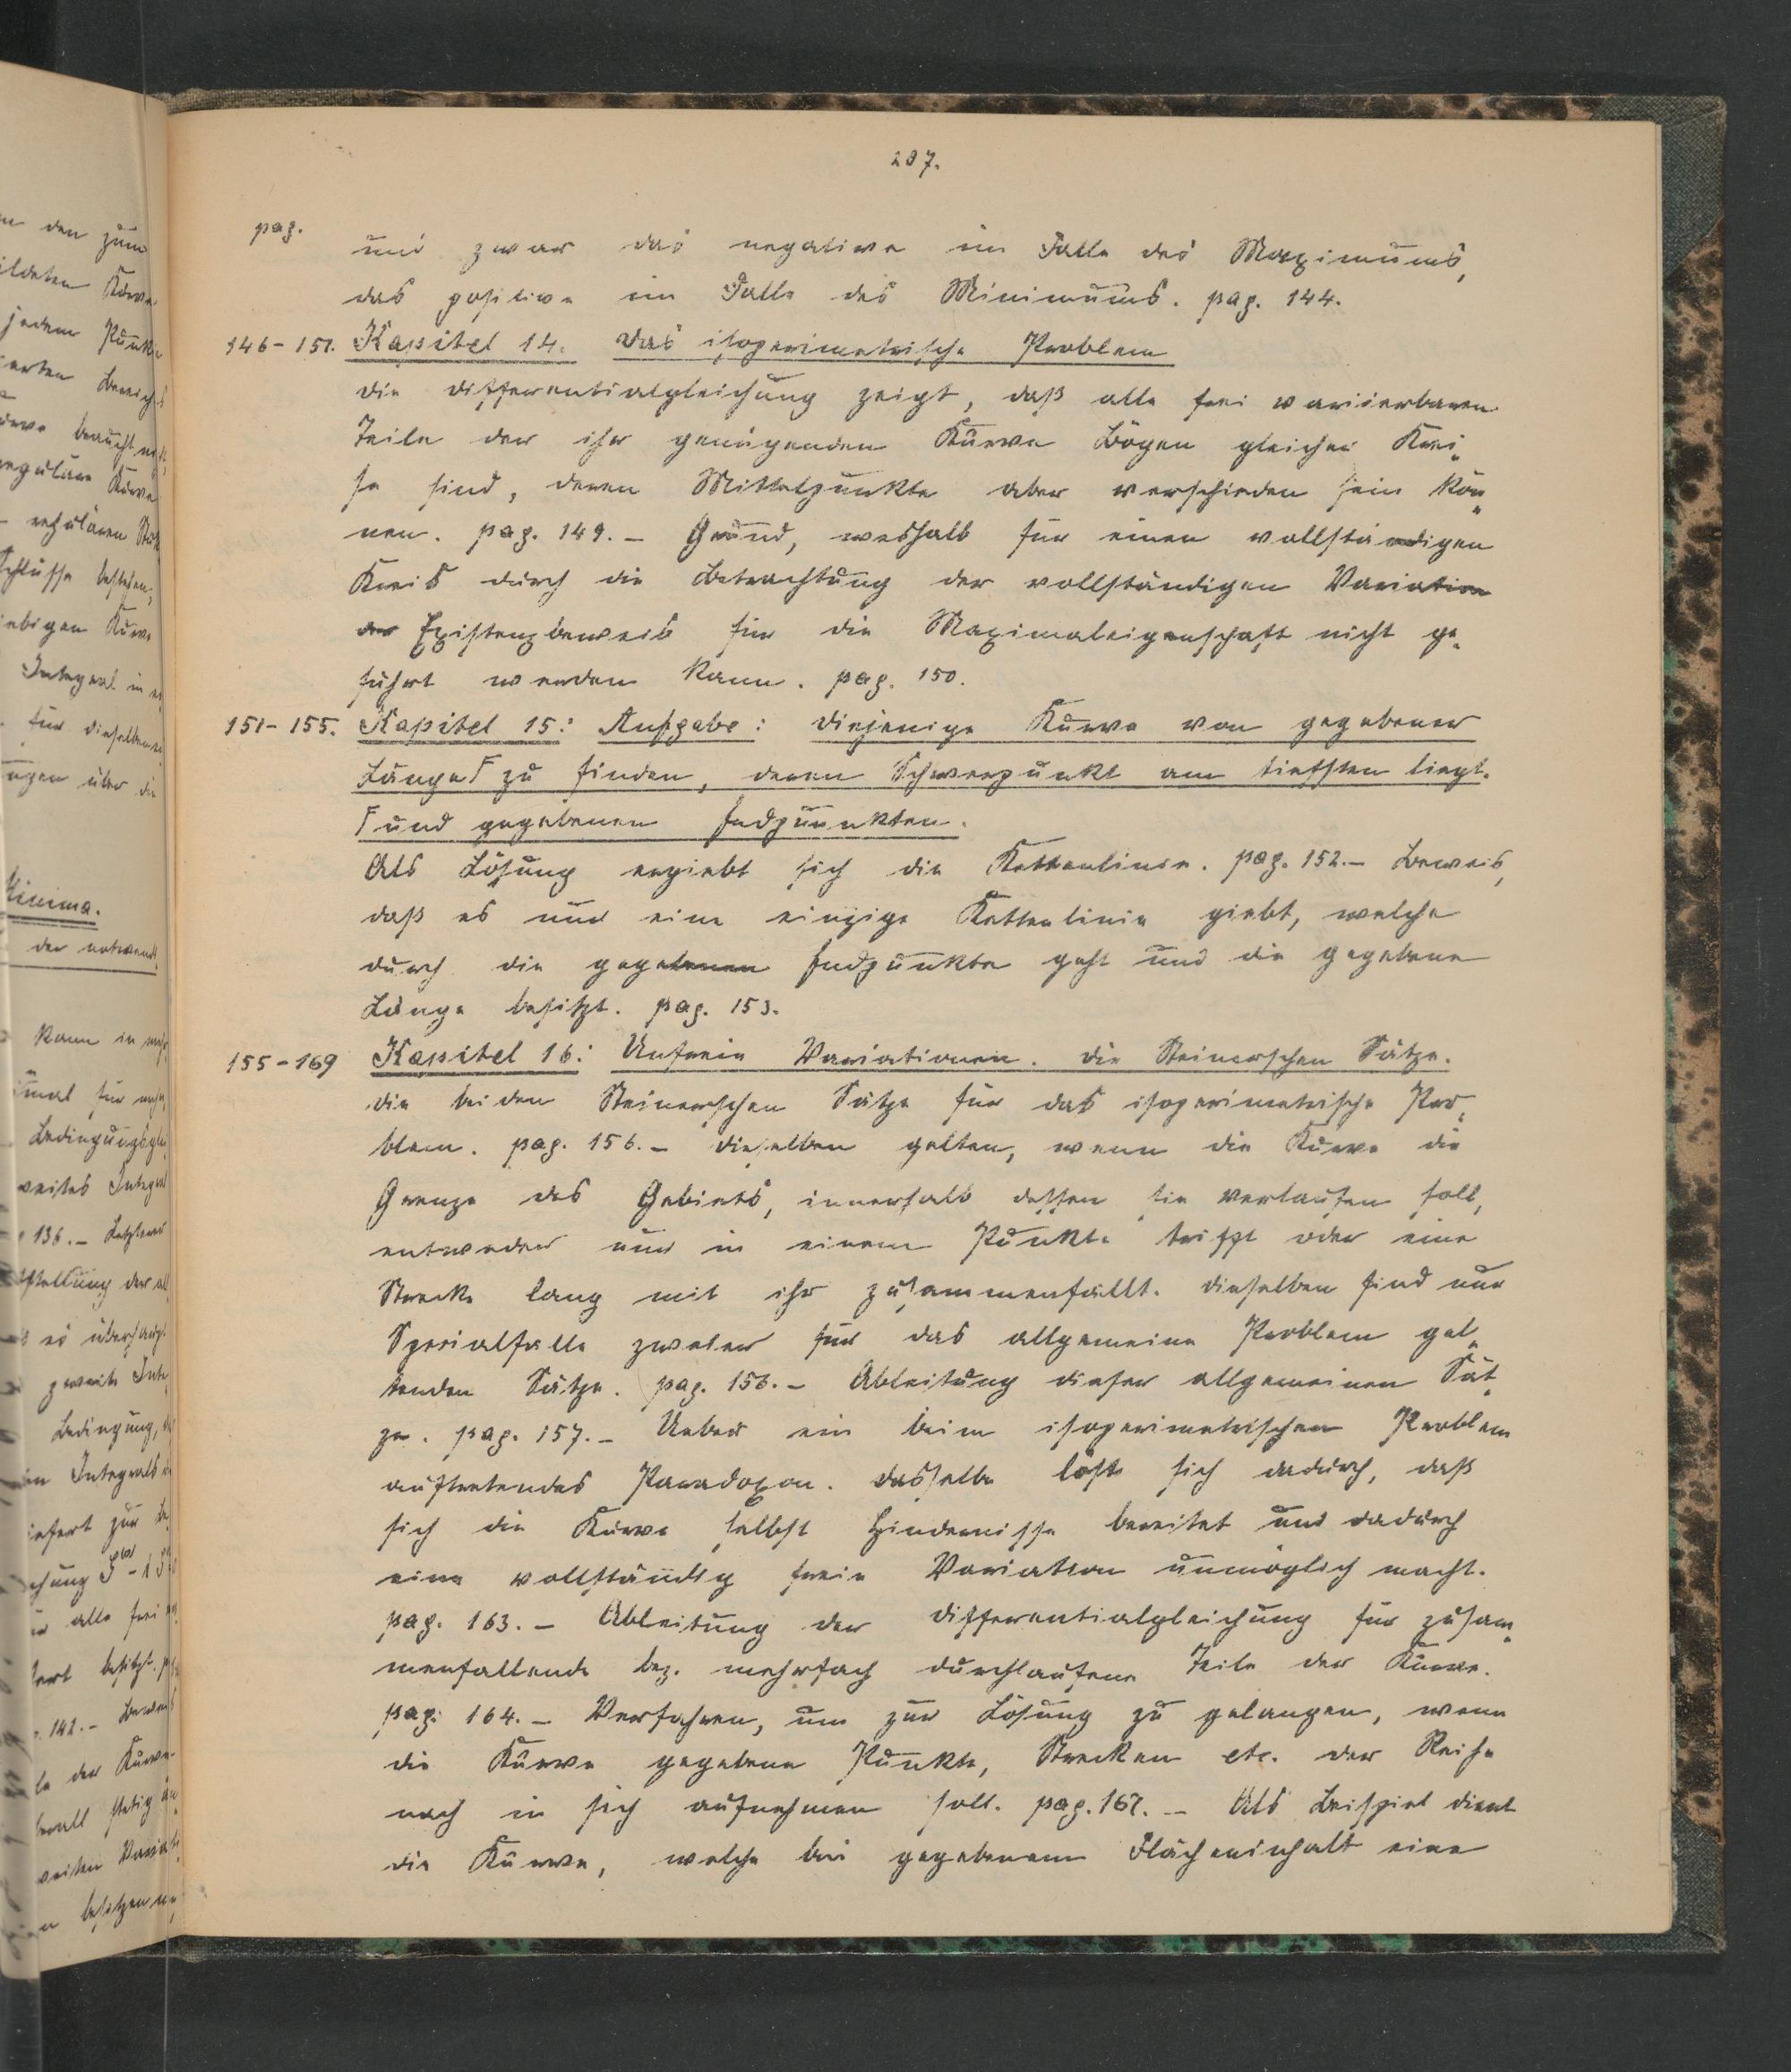 207.
pag.
und zwar das negative im Falle des Maximums,
das positive im Falle des Minimums. pag. 144.
146-151. Kapitel 14. Das isoperimetrische Problem
Die Differentialgleichung zeigt, daß alle frei variierbaren
Teile der ihr genügenden Kurve Bögen gleicher Krei„
se sind, deren Mittelpunkte aber verschieden sein kön„
nen. pag. 149. – Grund, weshalb für einen vollständigen
Kreis durch die Betrachtung der vollständigen Variation
der Existenzbeweis für die Maximaleigenschaft nicht ge„
führt werden kann. pag. 150.
151-155. Kapitel 15: Aufgabe: Diejenige Kurve von gegebener
Länge Γ zu finden, deren Schwerpunkt am tiefsten liegt.
Γ und gegebenen Endpunkten.
Als Lösung ergiebt sich die Kettenlinie. pag. 152. – Beweis,
daß es nur eine einzige Kettenlinie giebt, welche
durch die gegebenen Endpunkte geht und die gegebene
Länge besitzt. pag. 153.
155-169 Kapitel 16: Unfreie Variationen. Die Steinerschen Sätze.
Die beiden Steinerschen Sätze für das isoperimetrische Pro„
blem. pag. 156. – Dieselben gelten, wenn die Kurve die
Grenze des Gebiets, innerhalb dessen sie verlaufen soll,
entweder nur in einem Punkte trifft oder eine
Strecke lang mit ihr zusammenfällt. Dieselben sind nur
Spezialfälle zweier für das allgemeine Problem gel„
tenden Sätze. pag. 156. – Ableitung dieser allgemeinen Sät„
ze. pag. 157. – Ueber ein beim isoperimetrischen Problem
auftretendes Paradoxon. Dasselbe löst sich dadurch, daß
sich die Kurve selbst Hindernisse bereitet und dadurch
eine vollständig freie Variation unmöglich macht.
pag. 163. – Ableitung der Differentialgleichung für zusam„
menfallende bez. mehrfach durchlaufene Teile der Kurve.
pag. 164. – Verfahren, um zur Lösung zu gelangen, wenn
die Kurve gegebene Punkte, Strecken etc. der Reihe
nach in sich aufnehmen soll. pag. 167. – Als Beispiel dient
die Kurve, welche bei gegebenem Flächeninhalt eine